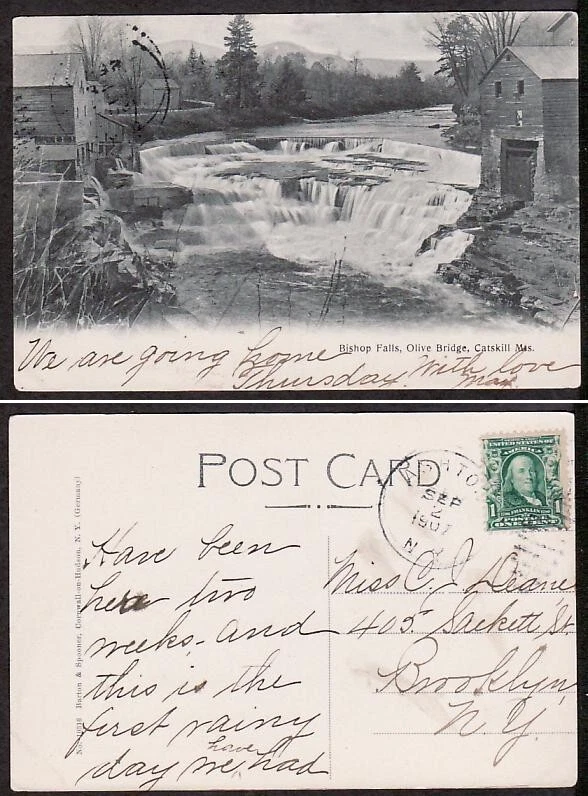 Bishop Falls, Olive Bridge, Catskill Mts.
We are going home
Thursday. With love
May
POST CARD
SEP
2
1907
N.Y.
UNITED STATES OF
AMERICA
FRANKLIN
1 1
POSTAGE
ONE CENT
Barton & Spooner, Cornwall-on-Hudson, N. Y. (Germany)
Have been
here two
weeks and
this is the
first rainy
day we have had
Miss C. J. Deane
405. Sackett St
Brooklyn,
N.Y.